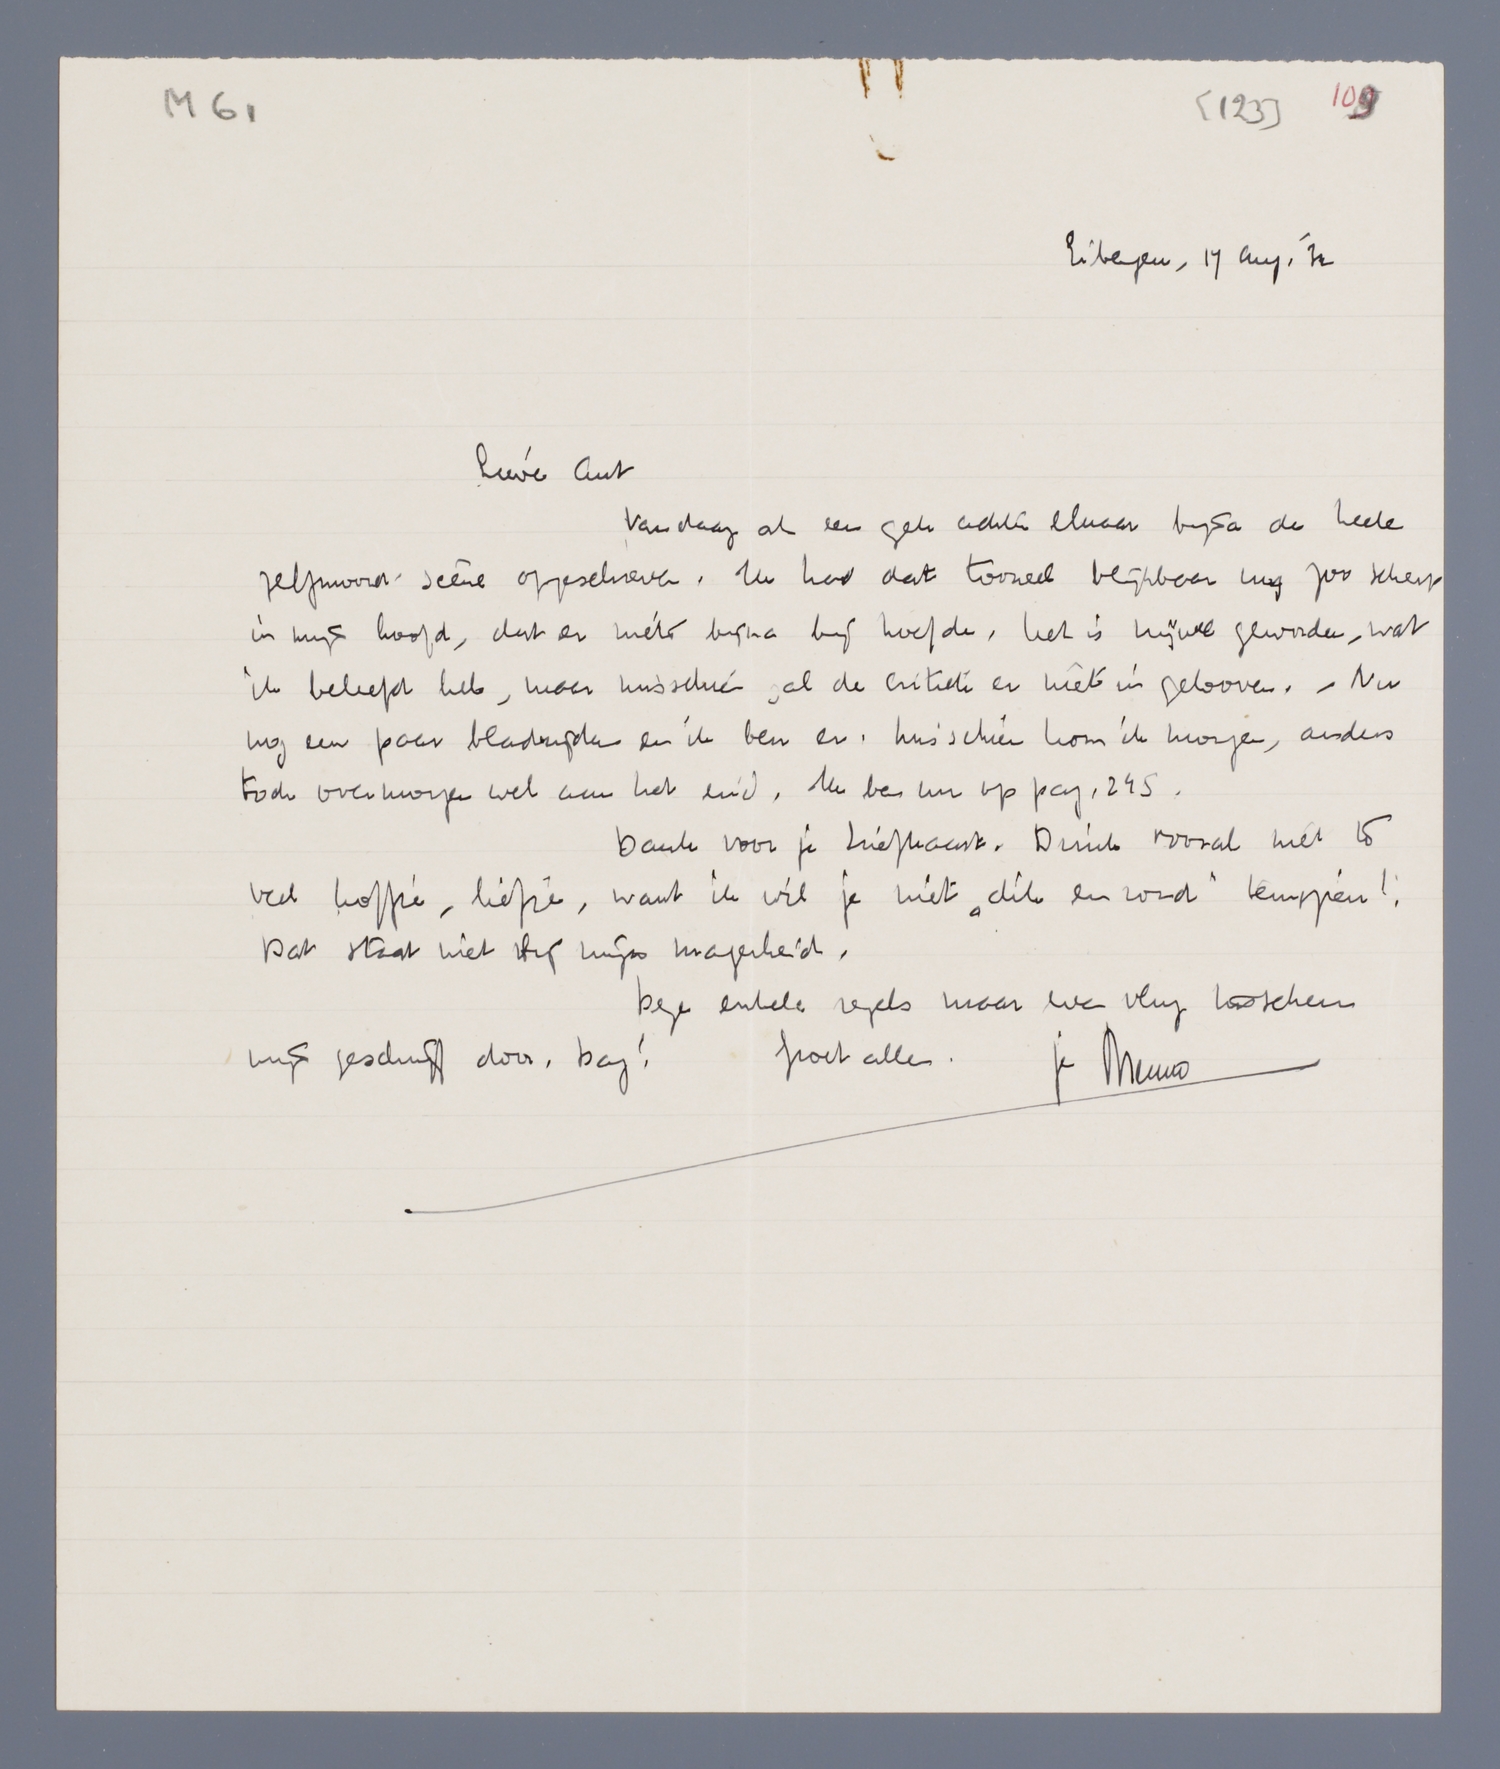 M 61
[123] 109
Eibergen, 17 Aug. '32
Lieve Ant
Vandaag als een gek achter elkaar bijna de heele
zelfmoord-scène opgeschreven. Ik had dat tooneel blijkbaar nog zoo scherp
in mijn hoofd, dat er niets bijna bij hoefde. Het is geworden, wat
ik beleefd heb, maar misschien zal de critiek er niet in gelooven. – Nu
nog een paar bladzijden en ik ben er. Misschien kom ik morgen, anders
toch overmorgen wel aan het eind. Ik ben nu op pag. 245.
Dank voor je briefkaart. Drink vooral niet te
veel koffie, liefje, want ik wil je niet „dik en rond" knuppen!
Dat staat niet bij mijn magerheid.
Deze enkele regels maar even vlug tusschen
mijn geschrijf door. Dag! Groet allen. je Menno